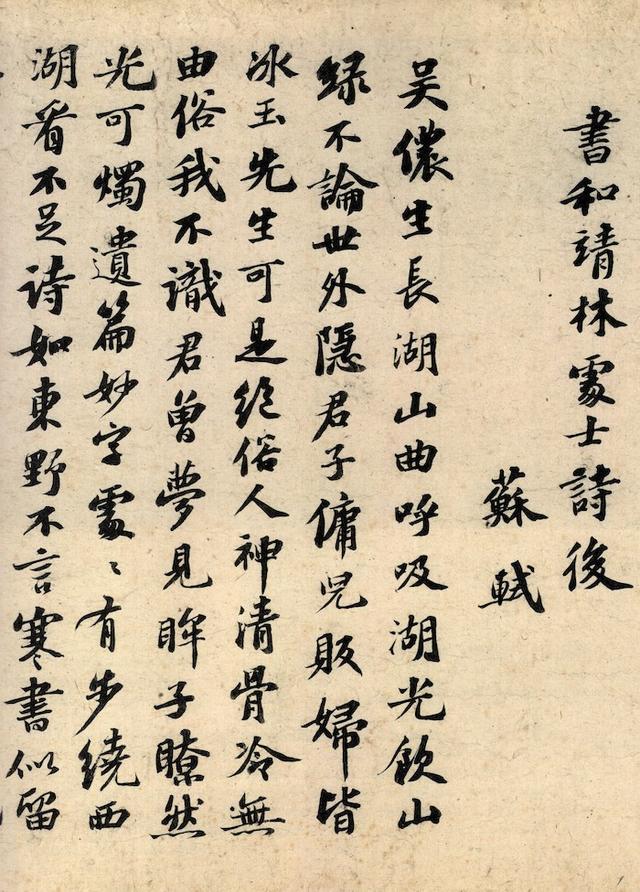 書和靖林處士詩後
蘇軾
吴儂生長湖山曲呼吸湖光飲山
緑不論世外隱君子傭兒販婦皆
冰玉先生可是絕俗人神清骨冷無
由俗我不識君曾夢見眸子瞭然
光可燭遺篇妙字處〻有步繞西
湖看不足詩如東野不言寒書似留